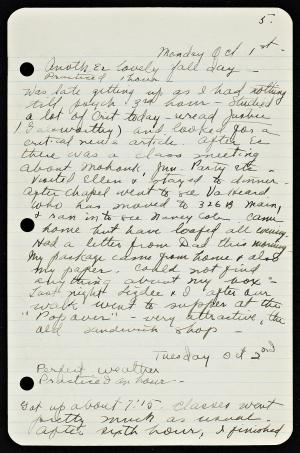 5.
Monday Oct 1st -
Another lovely fall day -
Practiced 1 hour
Was late getting up as I had nothing
till psych 3rd hour - Studied
a lot of Crit today - read Justice
(Galsworthy) and looked for a
critical news article. After
there was a class meeting
about Mohonk, Jun. Party etc -
Visited Ellen & stayed to dinner -
After chapel went to see Va Heard
who has moved to 326 B Main,
& ran in to see Nancy Cole. Came
home but have loafed all evening.
Had a letter from Dad this morning
My package came from home & also
my paper. Could not find
anything about my
Last night Lydee & I after our
walk went to supper at the
"Popover" - very attractive, the
old sandwich shop -
Tuesday Oct 2nd
Perfect weather
Practiced an hour -
Got up about 7:15. Classes went
pretty much as usual.
After sixth hour, I finished